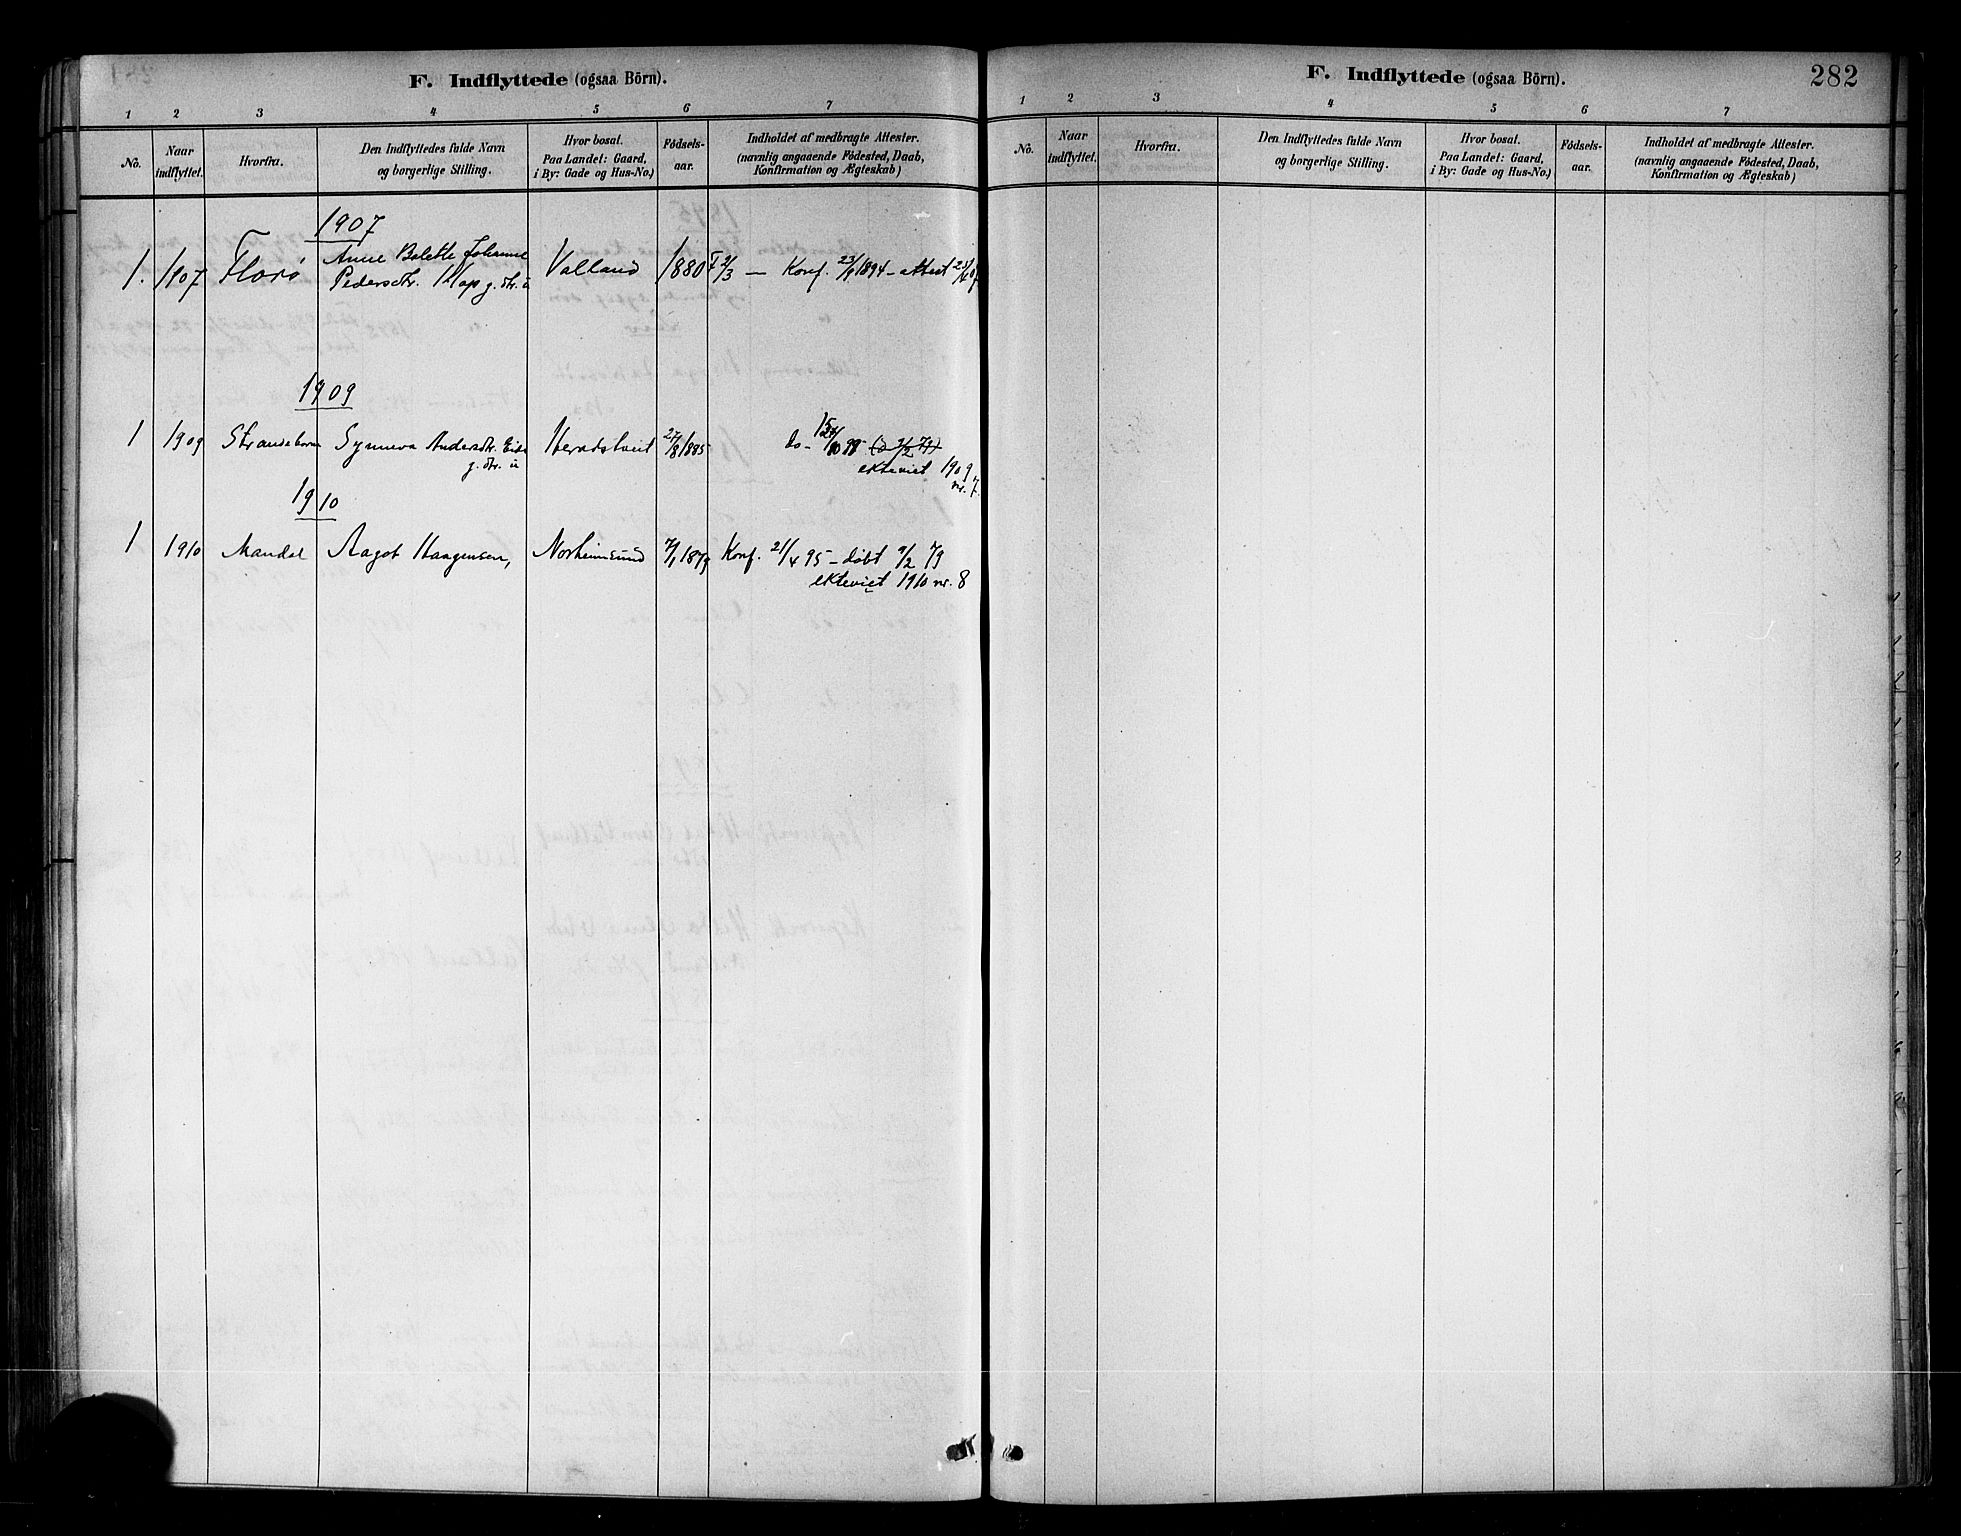 F. Indflyttede (ogsaa Börn).
1 2 3 4 5 6 7
No.
Naar indflyttet.
Hvorfra.
Den Indflyttedes fulde Navn og borgerlige Stilling.
Hvor bosat.
Paa Landet: Gaard,
i By: Gade og Hus-No.)
Födsels-aar.
Indholdet af medbragte Attester.
(navnlig angaaende Födested, Daab,
Konfirmation og Ægteskab)
1907
1. 1907 Florø Anne Bolette Johanne Valland 1880 2/3 — Konf. 23/9 1894 - attest
Pedersdtr. Klap g. dtr. u
1909
1 1909 Strandebarm Synneva Andersdtr. Heradstveit 27/8 1885 do-
g. dtr. u
ekteviet 1909
nr. 7.
1910
1 1910 Mandal Aagot Haagensen, Norheimsund 7/1 1879 Konf. 21/4 95 - døbt 9/2 79
ekteviet 1910 nr. 8
F. Indflyttede (ogsaa Börn).
282
1 2 3 4 5 6 7
No.
Naar indflyttet.
Hvorfra.
Den Indflyttedes fulde Navn og borgerlige Stilling.
Hvor bosat.
Paa Landet: Gaard,
i By: Gade og Hus-No.)
Födsels-aar.
Indholdet af medbragte Attester.
(navnlig angaaende Födested, Daab,
Konfirmation og Ægteskab)